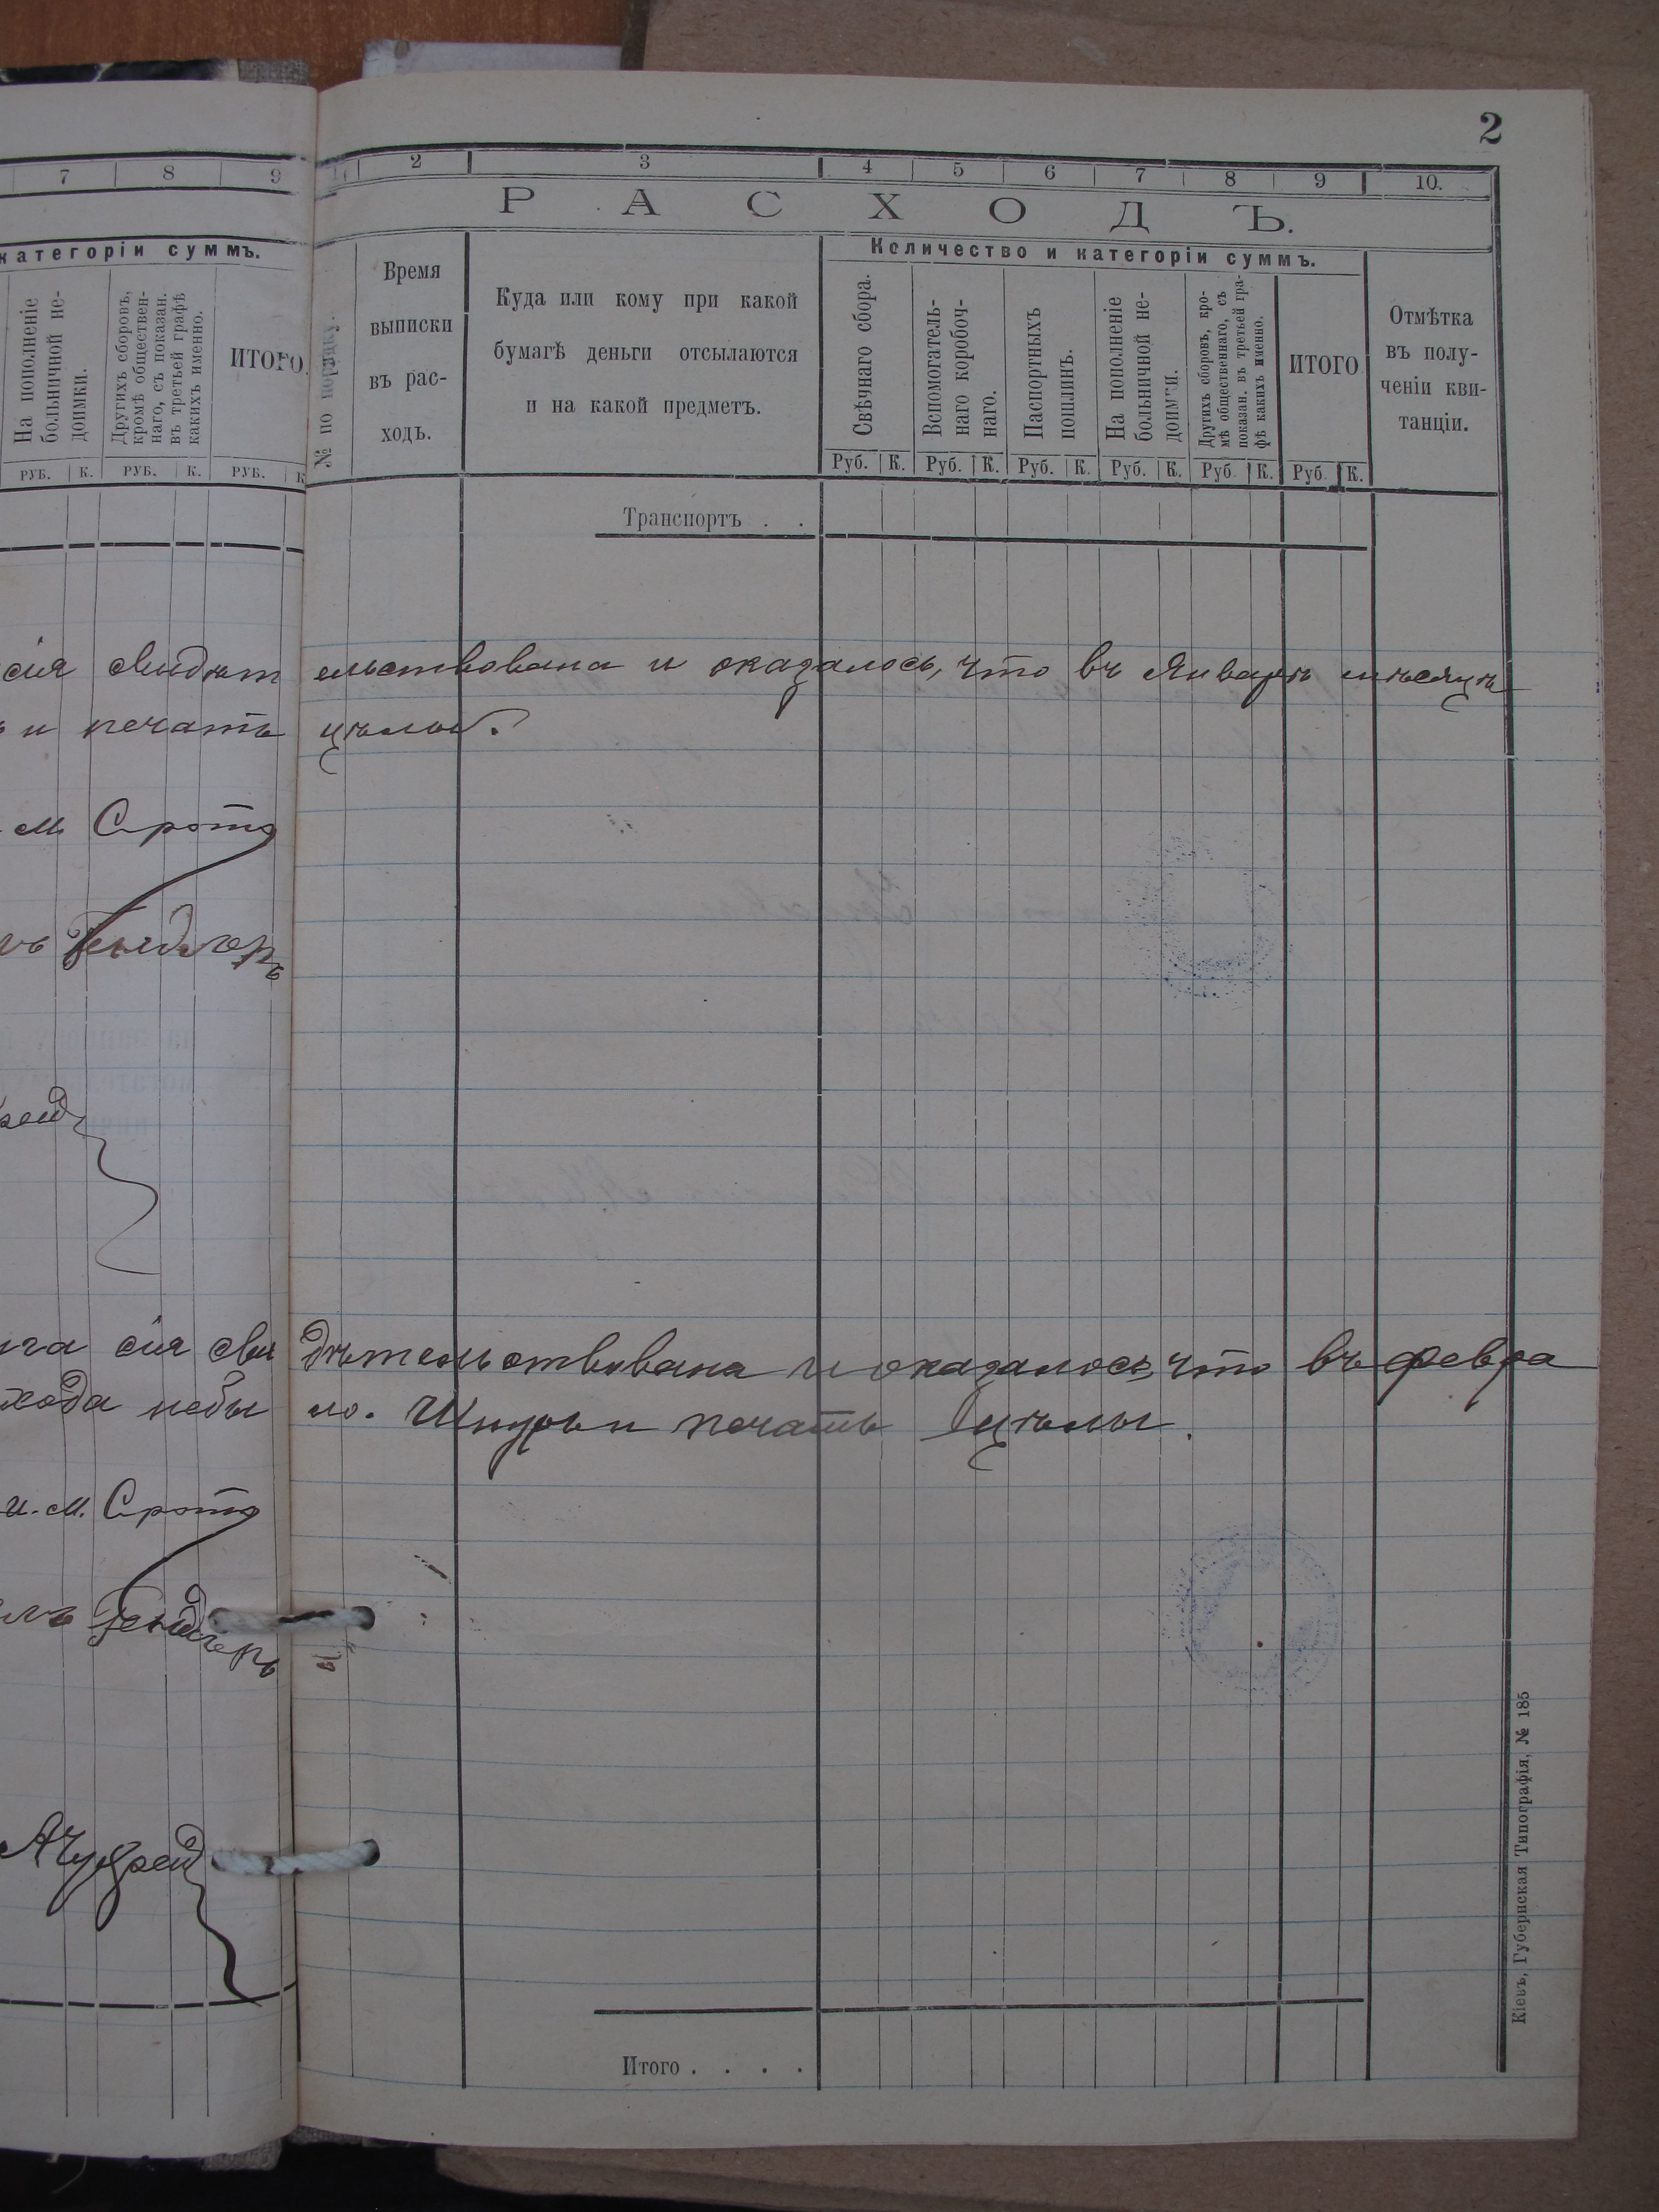 2
7 8 9
категоріи суммъ.
На пополненіе
больничной не-
доимки.
Другихъ сборовъ,
кромѣ обществен-
наго, съ показан.
въ третьей графѣ
какихъ именно.
ИТОГО.
РУБ. К. РУБ. К. РУБ. К
2 3 4 5 6 7 8 9 10.
РАСХОДЪ.
№ по порядку.
Время
выписки
въ рас-
ходъ.
Куда или кому при какой
бумагѣ деньги отсылаются
и на какой предметъ.
Количество и категоріи суммъ.
Свѣчнаго сбора.
Вспомогатель-
наго коробоч-
наго.
Паспортныхъ
пошлинъ.
На пополненіе
больничной не-
доимки.
Другихъ сборовъ, кро-
мѣ общественнаго, съ
показан. въ третьей гра-
фѣ какихъ именно.
ИТОГО
Отмѣтка
въ полу-
ченіи кви-
танціи.
Руб. К. Руб. К. Руб. К. Руб. К. Руб. К. Руб. К.
Транспортъ . .
сія свидѣт ельствована и оказалось, что въ Январѣ мѣсяцѣ
и печать цѣлы.
м Сротъ
сія сви дѣтельствована и оказалось, что въ февра
хода небы ло. Шнуръ и печать цѣлы.
и. м. Сротъ
Итого . . . .
Кіевъ, Губернская Типографія, № 185